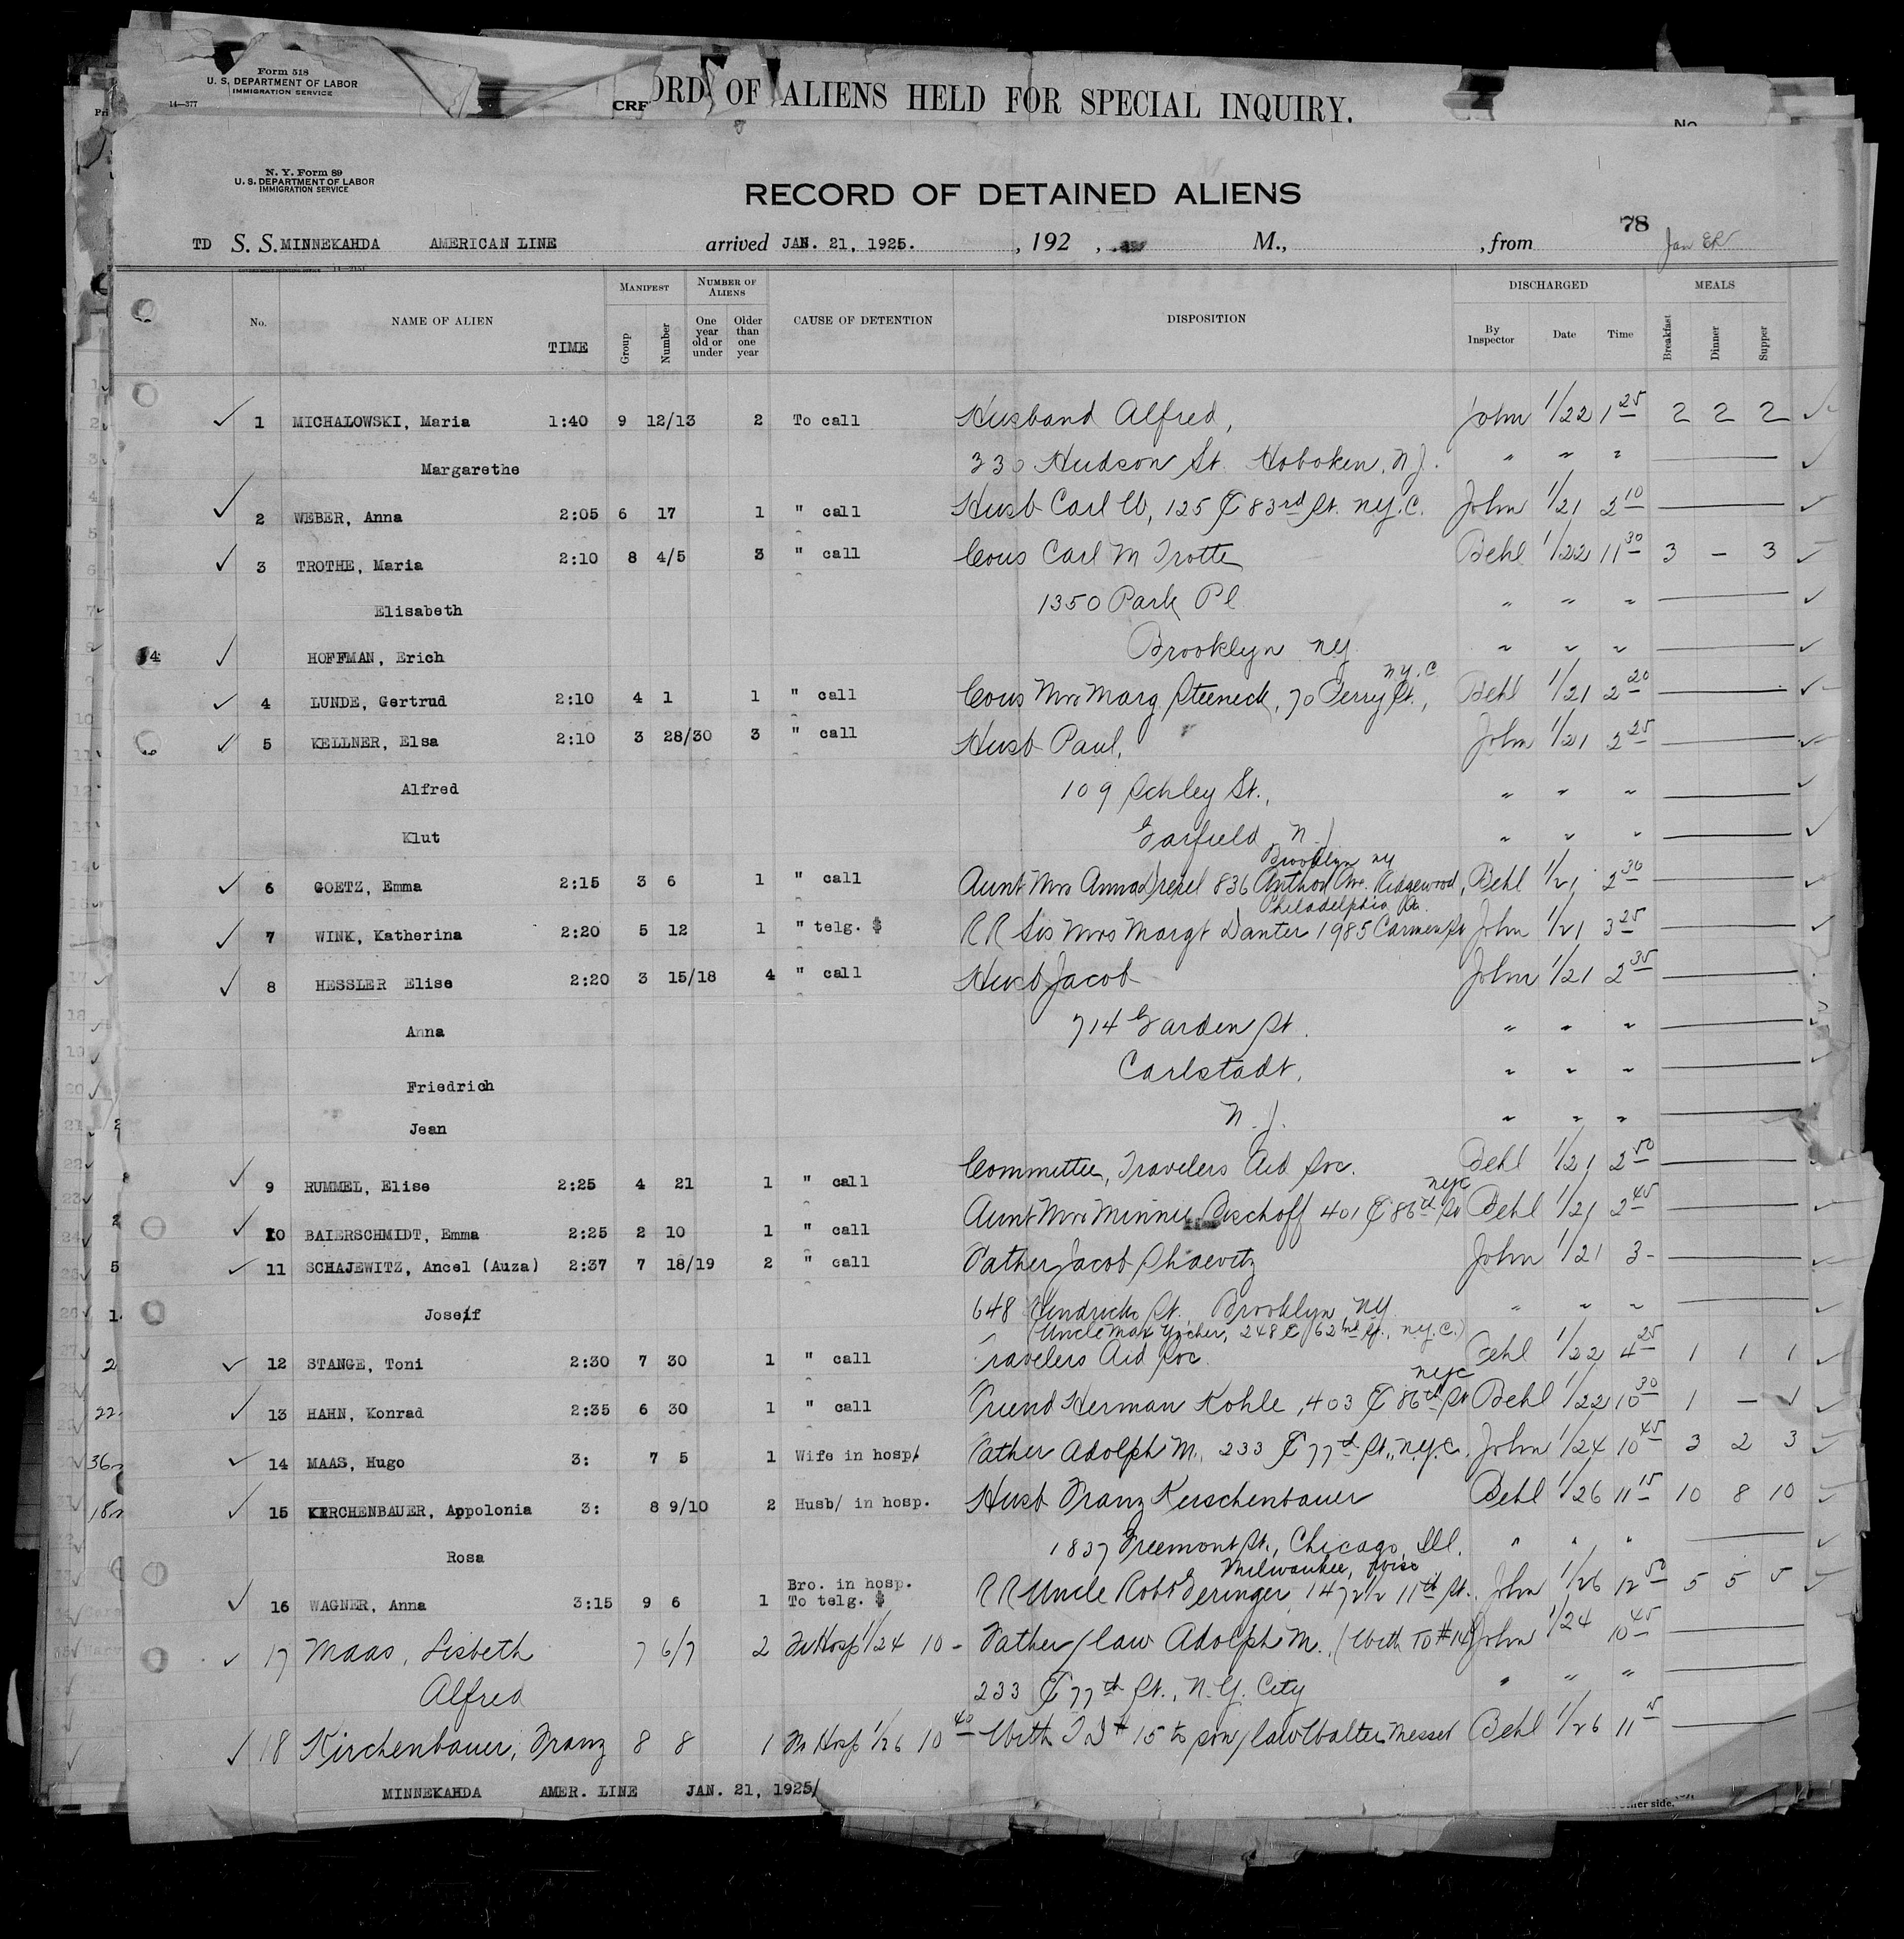 Form 518
U. S. DEPARTMENT OF LABOR
IMMIGRATION SERVICE
14—377
CRF
ORD OF ALIENS HELD FOR SPECIAL INQUIRY.
No
N. Y. Form 89
U. S. DEPARTMENT OF LABOR
IMMIGRATION SERVICE
RECORD OF DETAINED ALIENS
78
TD S. S. MINNEKAHDA AMERICAN LINE arrived JAN. 21, 1925. , 192 , M., , from
No. NAME OF ALIEN TIME MANIFEST Group Number NUMBER OF ALIENS One year old or under Older than one year CAUSE OF DETENTION DISPOSITION DISCHARGED By Inspector Date Time MEALS Breakfast Dinner Supper
1 MICHALOWSKI, Maria 1:40 9 12/13 2 To call Husband Alfred, John 1/22 1 25 2 2 2
Margarethe 330 Hudson St. Hoboken, N.J. " " "
2 WEBER, Anna 2:05 6 17 1 " call Husb Carl W, 125 E 83rd St. N.Y.C. John 1/21 2 10
3 TROTHE, Maria 2:10 8 4/5 3 " call Cous Carl M Trotte Behl 1/22 11 30 3 — 3
Elisabeth 1350 Park Pl " " "
4 HOFFMAN, Erich Brooklyn NY " " "
4 LUNDE, Gertrud 2:10 4 1 1 " call Cous Mrs Marg Steeneck, 70 Perry St., N.Y.C Behl 1/21 2 20
5 KELLNER, Elsa 2:10 3 28/30 3 " call Husb Paul, John 1/21 2 25
Alfred 109 Schley St., " " "
Klut Garfield, N.J. " " "
6 GOETZ, Emma 2:15 3 6 1 " call Aunt Mrs Anna 836 Ave. Ridgewood, Brooklyn NY Behl 1/21 2 30
7 WINK, Katherina 2:20 5 12 1 " telg. $ RR Sis Mrs Margt Danter 1985 Carmen St Philadelphia Pa. John 1/21 3 25
8 HESSLER Elise 2:20 3 15/18 4 " call Husb Jacob John 1/21 2 35
Anna 714 Garden St. " " "
Friedrich Carlstadt, " " "
Jean N.J. " " "
9 RUMMEL, Elise 2:25 4 21 1 " call Committee, Travelers Aid Soc. Behl 1/21 2 50
10 BAIERSCHMIDT, Emma 2:25 2 10 1 " call Aunt Mrs Minnie Bischoff 401 E 86th St NYC Behl 1/21 2 45
11 SCHAJEWITZ, Ancel (Auza) 2:37 7 18/19 2 " call Father Jacob Shaevitz John 1/21 3-
Joseif 648 Hendricks St., Brooklyn, NY " " "
(Uncle Max 248 E 62nd St., N.Y.C.)
12 STANGE, Toni 2:30 7 30 1 " call Travelers Aid Soc. Behl 1/22 4 25 1 1 1
13 HAHN, Konrad 2:35 6 30 1 " call Friend Herman Kohle, 403 E 86th St NYC Behl 1/22 10 30 1 — 1
14 MAAS, Hugo 3: 7 5 1 Wife in hosp. Father Adolph M., 233 E 77th St., N.Y.C. John 1/24 10 45 3 2 3
15 KIRCHENBAUER, Appolonia 3: 8 9/10 2 Husb/ in hosp. Husb Franz Kerschenbauer Behl 1/26 11 15 10 8 10
Rosa 1837 Freemont St., Chicago, Ill. " " "
16 WAGNER, Anna 3:15 9 6 1 Bro. in hosp. To telg. $ RR Uncle Robt Geringer, 1472 1/2 11th St. Milwaukee, Wisc John 1/26 12 50 5 5 5
17 Maas, Lisbeth 7 6/7 2 Fr Hosp 1/24 10 - Father/law Adolph M., (With TD #14) John 1/24 10 45
Alfred 233 E 77th St., N.Y. City " " "
18 Kirchenbauer, Franz 8 8 1 Fr Hosp 1/26 10 40 With TD # 15 to son/law Walter Messer Behl 1/26 11 15
MINNEKAHDA AMER. LINE JAN. 21, 1925/
other side.